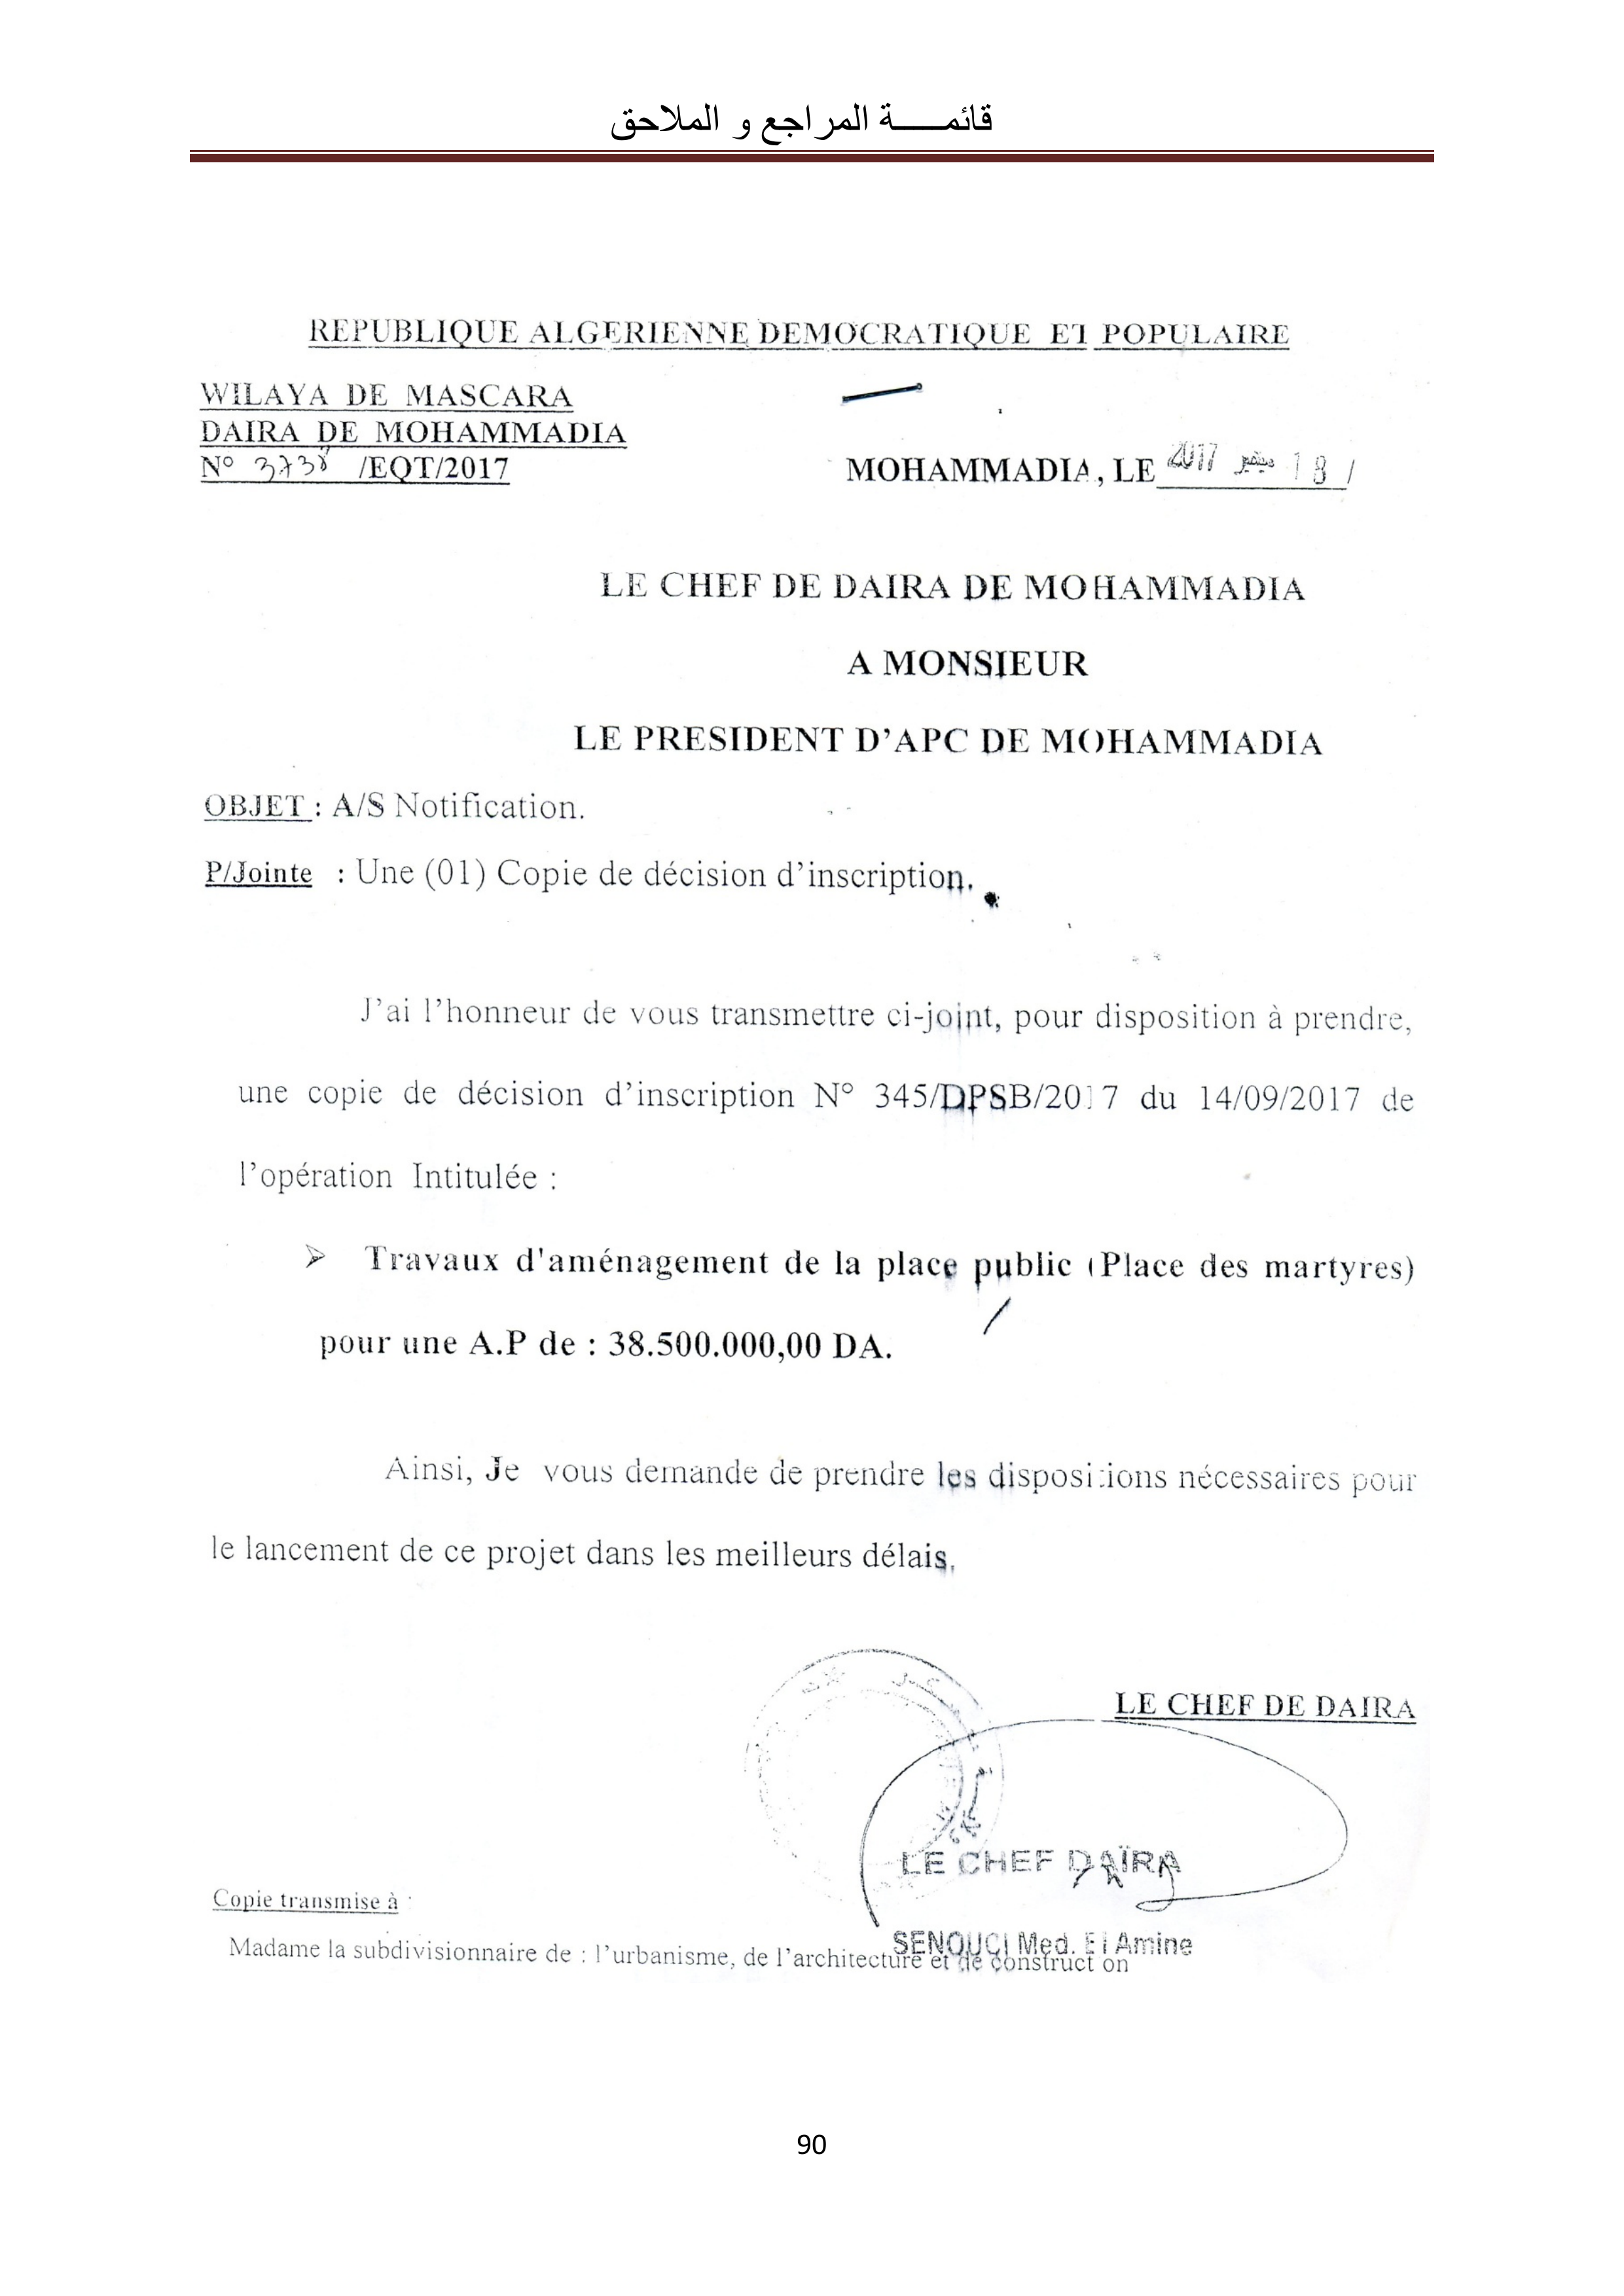 قائمـــــة المراجع و الملاحق
REPUBLIQUE ALGERIENNE DEMOCRATIQUE ET POPULAIRE
WILAYA DE MASCARA
DAIRA DE MOHAMMADIA
N° 3738 /EQT/2017
MOHAMMADIA, LE 18 سبتمبر 2017
LE CHEF DE DAIRA DE MOHAMMADIA
A MONSIEUR
LE PRESIDENT D'APC DE MOHAMMADIA
OBJET : A/S Notification.
P/Jointe : Une (01) Copie de décision d'inscription.
J'ai l'honneur de vous transmettre ci-joint, pour disposition à prendre,
une copie de décision d'inscription N° 345/DPSB/2017 du 14/09/2017 de
l'opération Intitulée :
➢ Travaux d'aménagement de la place public (Place des martyres)
pour une A.P de : 38.500.000,00 DA.
Ainsi, Je vous demande de prendre les dispositions nécessaires pour
le lancement de ce projet dans les meilleurs délais.
LE CHEF DE DAIRA
LE CHEF DAÏRA
Copie transmise à :
SENOUCI Med. El Amine
Madame la subdivisionnaire de : l'urbanisme, de l'architecture et de construction
90